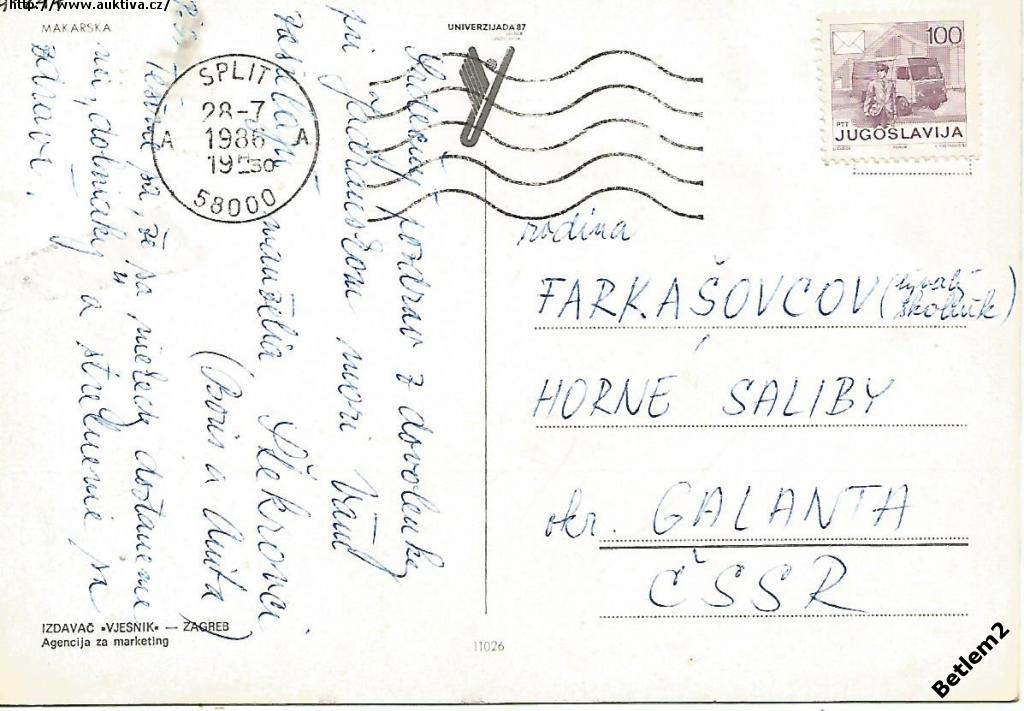 http://www.auktiva.cz/
MAKARSKA
UNIVERZIJADA 87
SPLIT
28-7
A 1986 A
19 30
58000
100
PTT
JUGOSLAVIJA
Srdečný pozdrav z dovolenky
pri Jadranskom mori Vám
zasielajú manželia Štekrovci
(Boris a Anita)
P.S. Tešíme sa, že sa niekedy dostaneme
na "dolniaky" a stretneme sa
zdraví.
rodina
FARKAŠOVCOV (bývalý školník)
HORNÉ SALIBY
okr. GALANTA
ČSSR
IZDAVAČ »VJESNIK« — ZAGREB
Agencija za marketing
11026
Betlem2